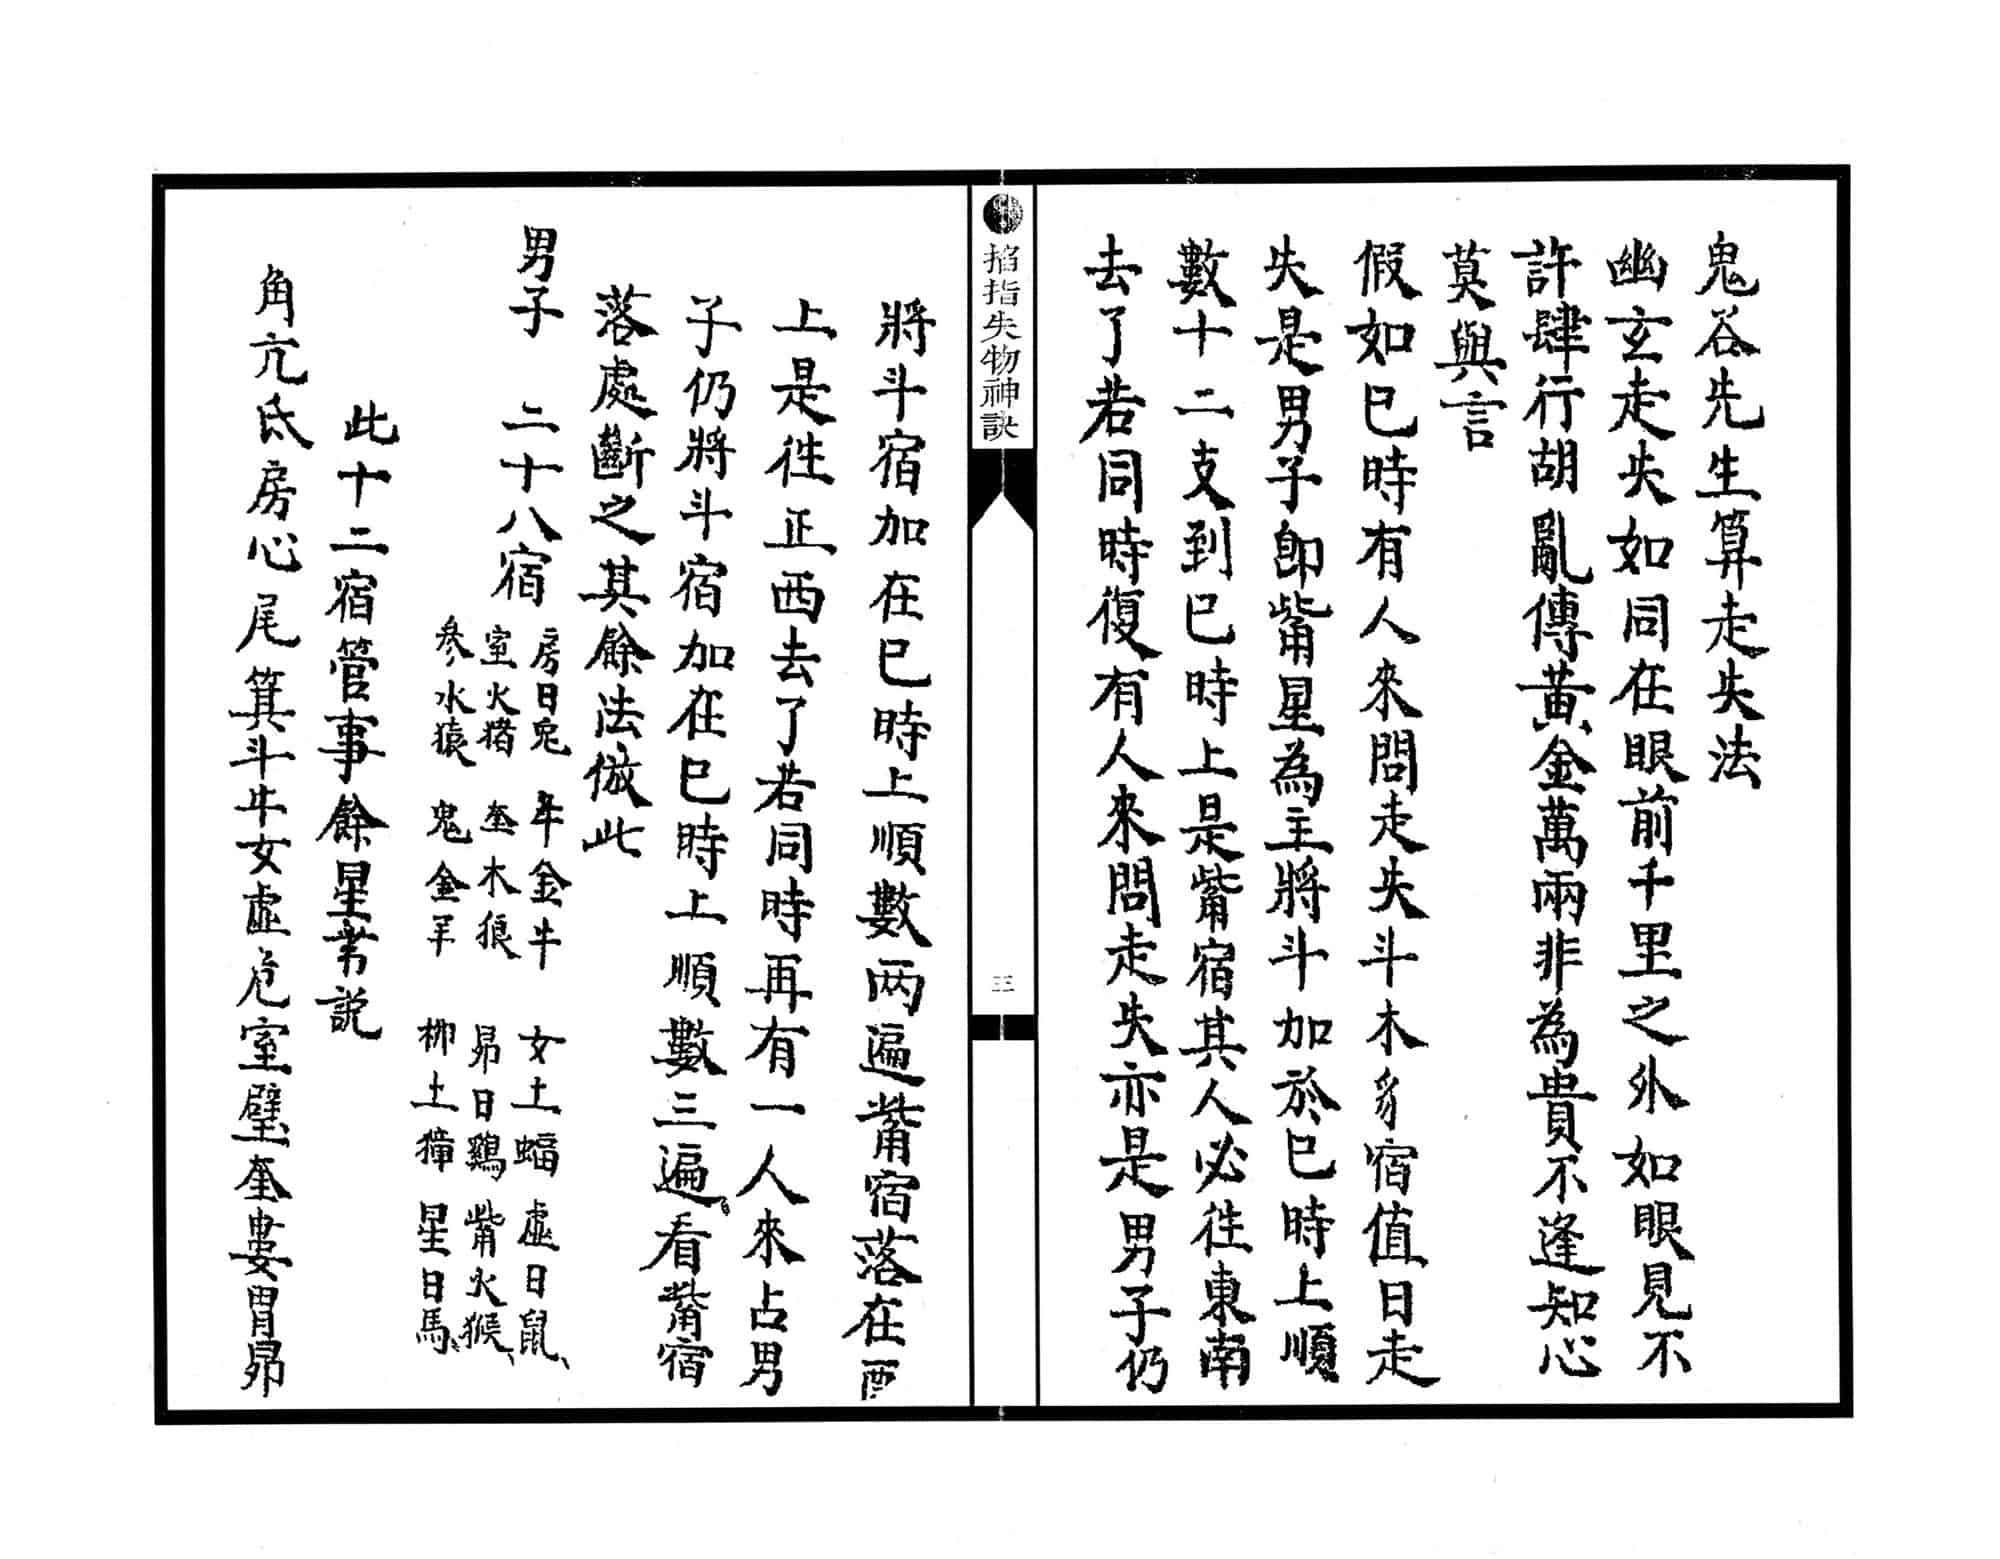 鬼谷先生算走失法
幽玄走失如同在眼前千里之外如眼見不
許肆行胡亂傳黃金萬兩非為貴不逢知心
莫與言
假如巳時有人來問走失斗木豸宿值日走
失是男子即觜星為主將斗加於巳時上順
數十二支到巳時上是觜宿其人必往東南
去了若同時復有人來問走失亦是男子仍
掐指失物神訣
三
將斗宿加在巳時上順數两遍觜宿落在酉
上是徃正西去了若同時再有一人來占男
子仍將斗宿加在巳時上順數三遍看觜宿
落處斷之其餘法倣此
男子 二十八宿
房日兔 牛金牛 女土蝠 虛日鼠
室火猪 奎木狼 昴日鷄 觜火猴
參水猿 鬼金羊 柳土獐 星日馬
此十二宿管事餘星常説
角亢氐房心尾箕斗牛女虛危室壁奎婁胃昴